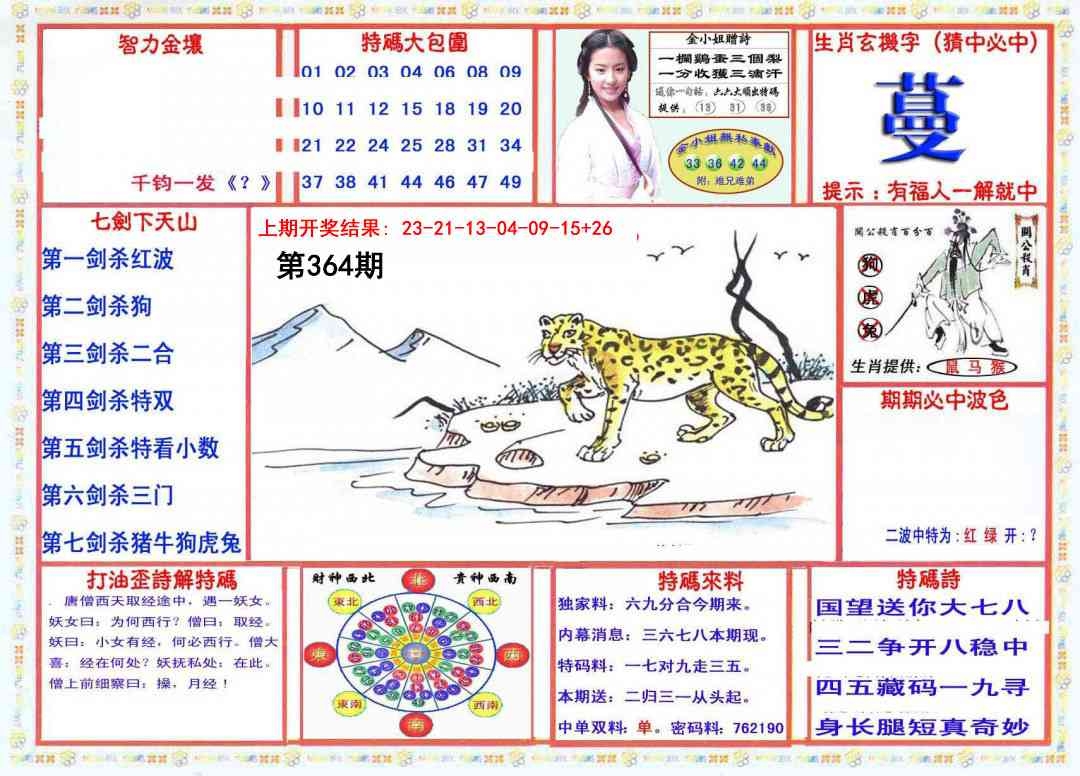 智力金壤
千钧一发《？》
特碼大包圍
01 02 03 04 06 08 09
10 11 12 15 18 19 20
21 22 24 25 28 31 34
37 38 41 44 46 47 49
金小姐贈詩
一欄鷄蛋三個梨
一分收獲三滴汗
送你一句話：六六大順出特碼
提供：(13) (31) (38)
金小姐無私奉獻
33 36 42 44
附：难兄难弟
生肖玄機字（猜中必中）
蔓
提示：有福人一解就中
七劍下天山
第一剑杀红波
第二剑杀狗
第三剑杀二合
第四剑杀特双
第五剑杀特看小数
第六剑杀三门
第七剑杀猪牛狗虎兔
上期开奖结果：23-21-13-04-09-15+26
第364期
關公殺肖百分百
關公殺肖
狗
虎
兔
生肖提供：鼠 马 猴
期期必中波色
二波中特为：红 绿 开：？
打油歪詩解特碼
．唐僧西天取经途中，遇一妖女。
妖女曰：为何西行？僧曰：取经。
妖曰：小女有经，何必西行。僧大
喜：经在何处？妖抚私处：在此。
僧上前细察曰：操，月经！
財神西北
貴神西南
北
東北
西北
東
西
東南
西南
南
特碼來料
独家料：六九分合今期来。
内幕消息：三六七八本期现。
特码料：一七对九走三五。
本期送：二归三一从头起。
中单双料：单。密码料：762190
特碼詩
国望送你大七八
三二争开八稳中
四五藏码一九寻
身长腿短真奇妙